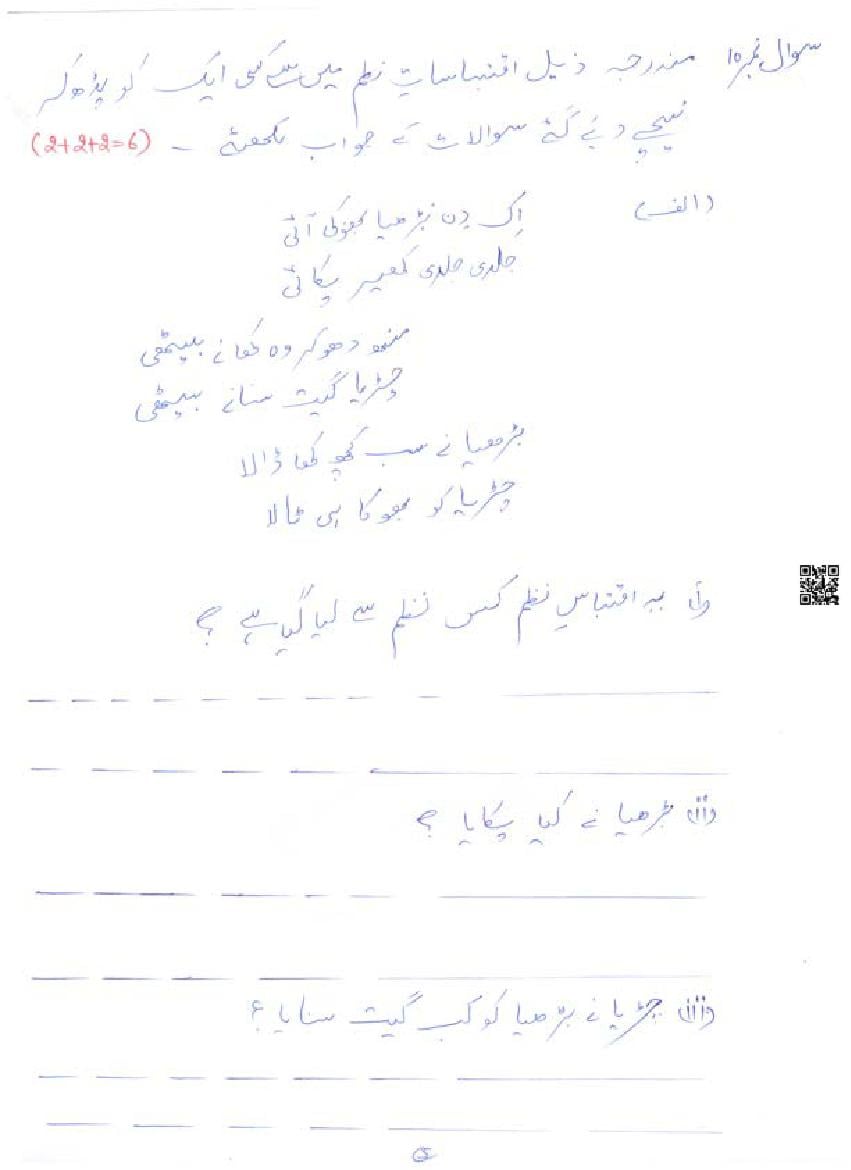 سوال نمبر ۱۰ مندرجہ ذیل اقتباساتِ نظم میں سے کسی ایک کو پڑھ کر
نیچے دئے گئے سوالات کے جواب لکھئے ۔ (2+2+2=6)
(الف) اِک دن بڑھیا بھوکی آئی
جلدی جلدی کھیر پکائی
منھ دھوکر وہ کھانے بیٹھی
چڑیا گیت سنانے بیٹھی
بڑھیا نے سب کچھ کھا ڈالا
چڑیا کو بھوکا ہی ٹالا
(i) یہ اقتباسِ نظم کس نظم سے لیا گیا ہے ؟
(ii) بڑھیا نے کیا پکایا ؟
(iii) چڑیا نے بڑھیا کو کب گیت سنایا ؟